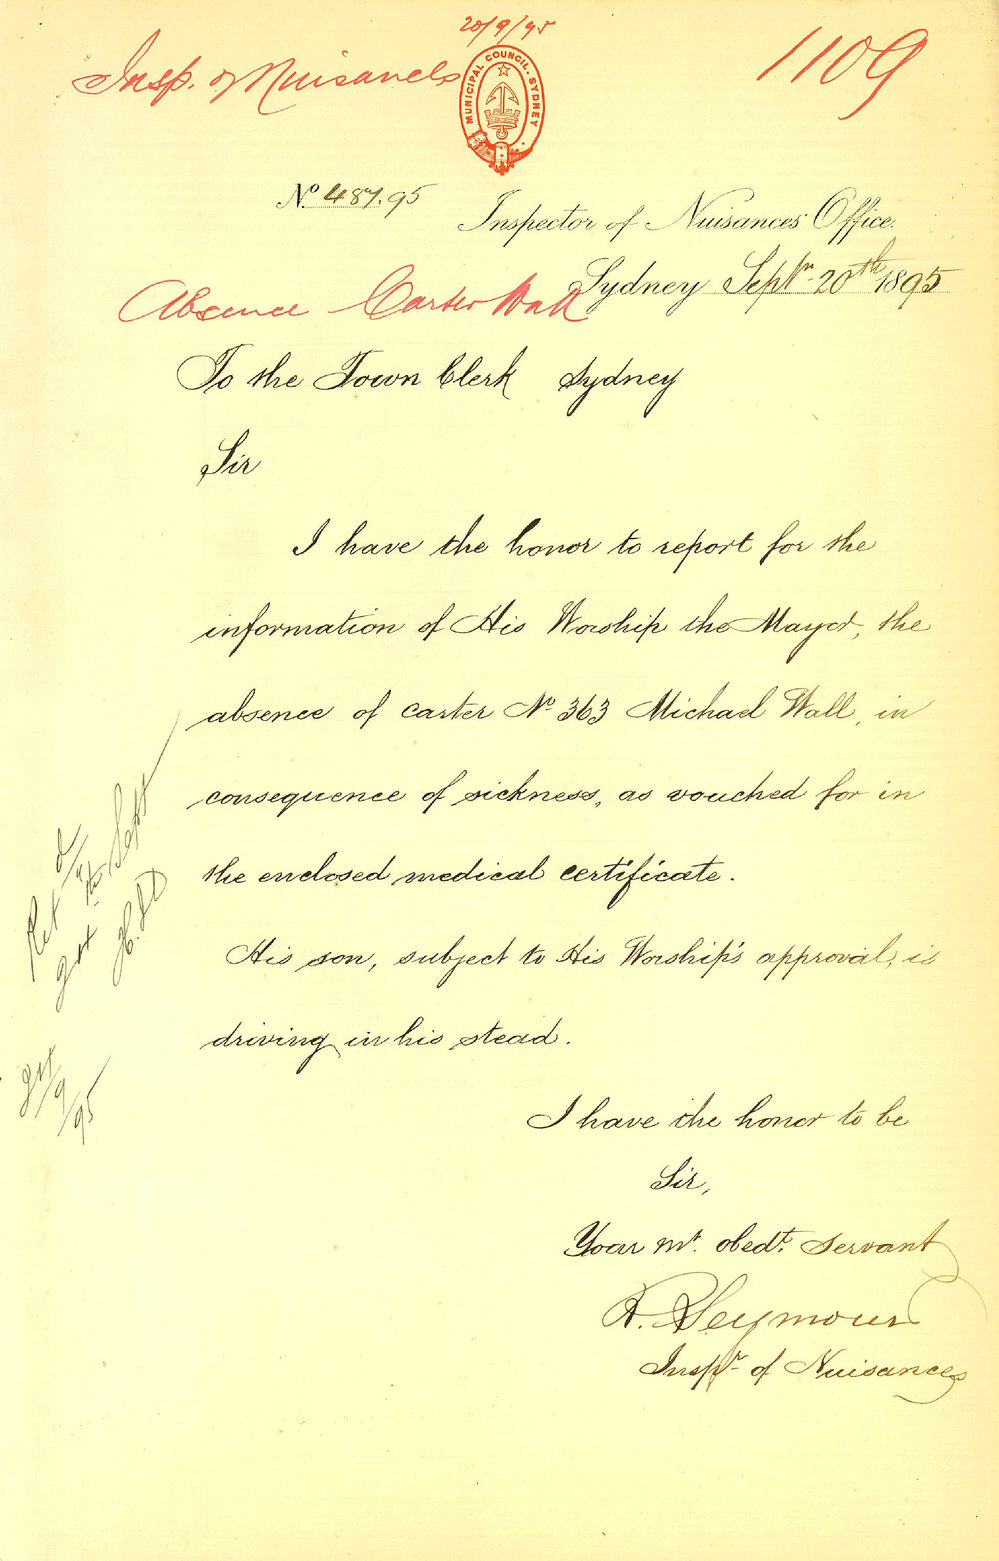 20/9/95
Insp. of Nuisances
1109
MUNICIPAL COUNCIL. SYDNEY
No. 487.95
Inspector of Nuisances' Office.
Sydney Septr. 20th 1895
Absence Carter Wall
To the Town Clerk Sydney
Sir
I have the honor to report for the
information of His Worship the Mayor, the
absence of carter No. 363 Michael Wall, in
consequence of sickness, as vouched for in
the enclosed medical certificate.
His son, subject to His Worship's approval, is
driving in his stead.
I have the honor to be
Sir,
Your mt. obedt. servant
R. Seymour
Inspr. of Nuisances
Sept
/9/95